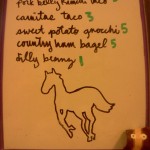 pork belly kimchi taco 3
carnitas taco 3
sweet potato gnocchi 5
country ham bagel 5
dilly beans 1